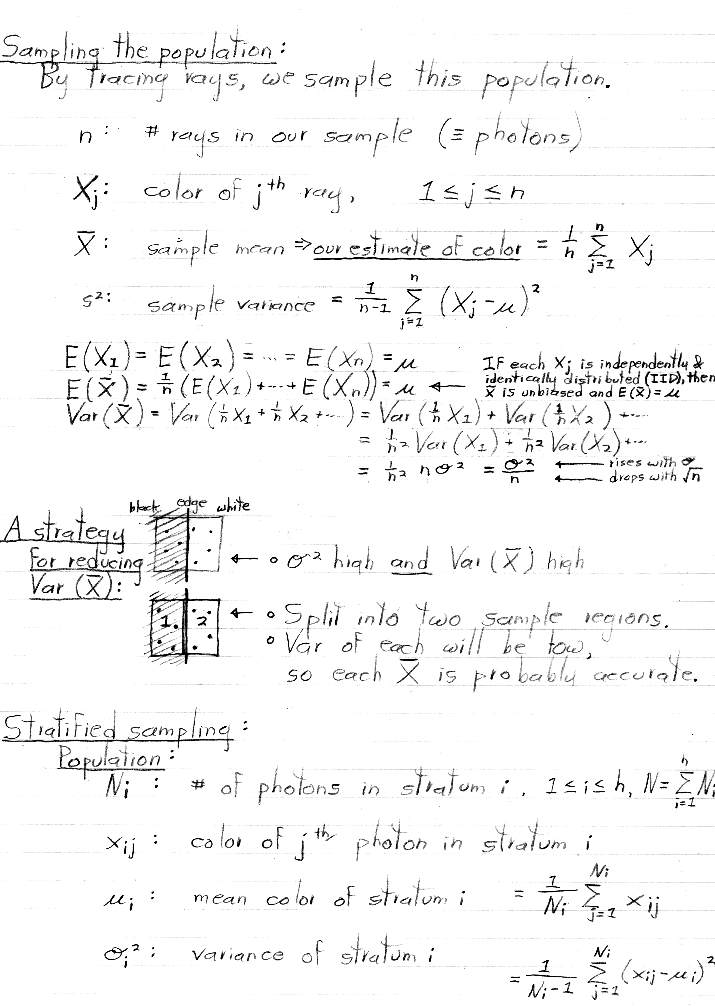 Sampling the population:
By tracing rays, we sample this population.
n: # rays in our sample (≡ photons)
Xj: color of jth ray, 1 ≤ j ≤ n
X̄: sample mean ⇒ our estimate of color = 1/n Σ_{j=1}^{n} Xj
s²: sample variance = 1/(n-1) Σ_{j=1}^{n} (Xj-μ)²
E(X1) = E(X2) = ··· = E(Xn) = μ
E(X̄) = 1/n (E(X1)+···+E(Xn)) = μ ← IF each Xj is independently & identically distributed (IID), then X̄ is unbiased and E(X̄) = μ
Var(X̄) = Var(1/n X1 + 1/n X2 + ···) = Var(1/n X1) + Var(1/n X2) + ···
= 1/n² Var(X1) + 1/n² Var(X2) + ···
= 1/n² n σ² = σ²/n ← rises with σ
← drops with √n
black edge white
A strategy
for reducing
Var(X̄):
← ∘ σ² high and Var(X̄) high
1. 2 ← ∘ Split into two sample regions.
∘ Var of each will be low,
so each X̄ is probably accurate.
Stratified sampling:
Population:
Ni : # of photons in stratum i, 1 ≤ i ≤ h, N = Σ_{i=1}^{h} Ni
xij : color of jth photon in stratum i
μi : mean color of stratum i = 1/Ni Σ_{j=1}^{Ni} xij
σi² : variance of stratum i
= 1/(Ni-1) Σ_{j=1}^{Ni} (xij-μi)²